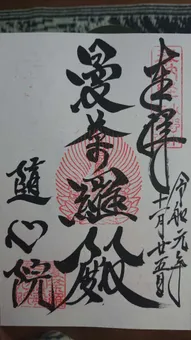 奉拝
令和元年
十一月廿五日
曼荼羅殿
隨心院